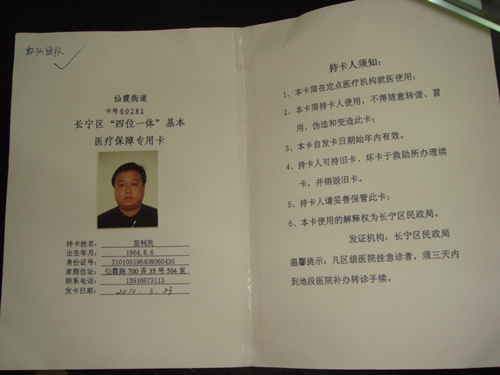 仙霞街道
卡号00281
长宁区“四位一体”基本
医疗保障专用卡
持卡姓名：苗利民
出生年月：1964.8.6
身份证号：310105196408060435
家庭住址：仙霞路700弄35号504室
联系电话：15916673113
发卡日期：2010.3.23
持卡人须知：
1、本卡限在定点医疗机构就医使用；
2、本卡限持卡人使用，不得随意转借、冒
用、伪造和变造此卡；
3、本卡自发卡日期始年内有效。
4、持卡人可持旧卡、坏卡于救助所办理续
卡，并销毁旧卡。
5、持卡人请妥善保管此卡；
6、本卡使用的解释权为长宁区民政局。
发证机构：长宁区民政局
温馨提示：凡区级医院挂急诊者，须三天内
到地段医院补办转诊手续。